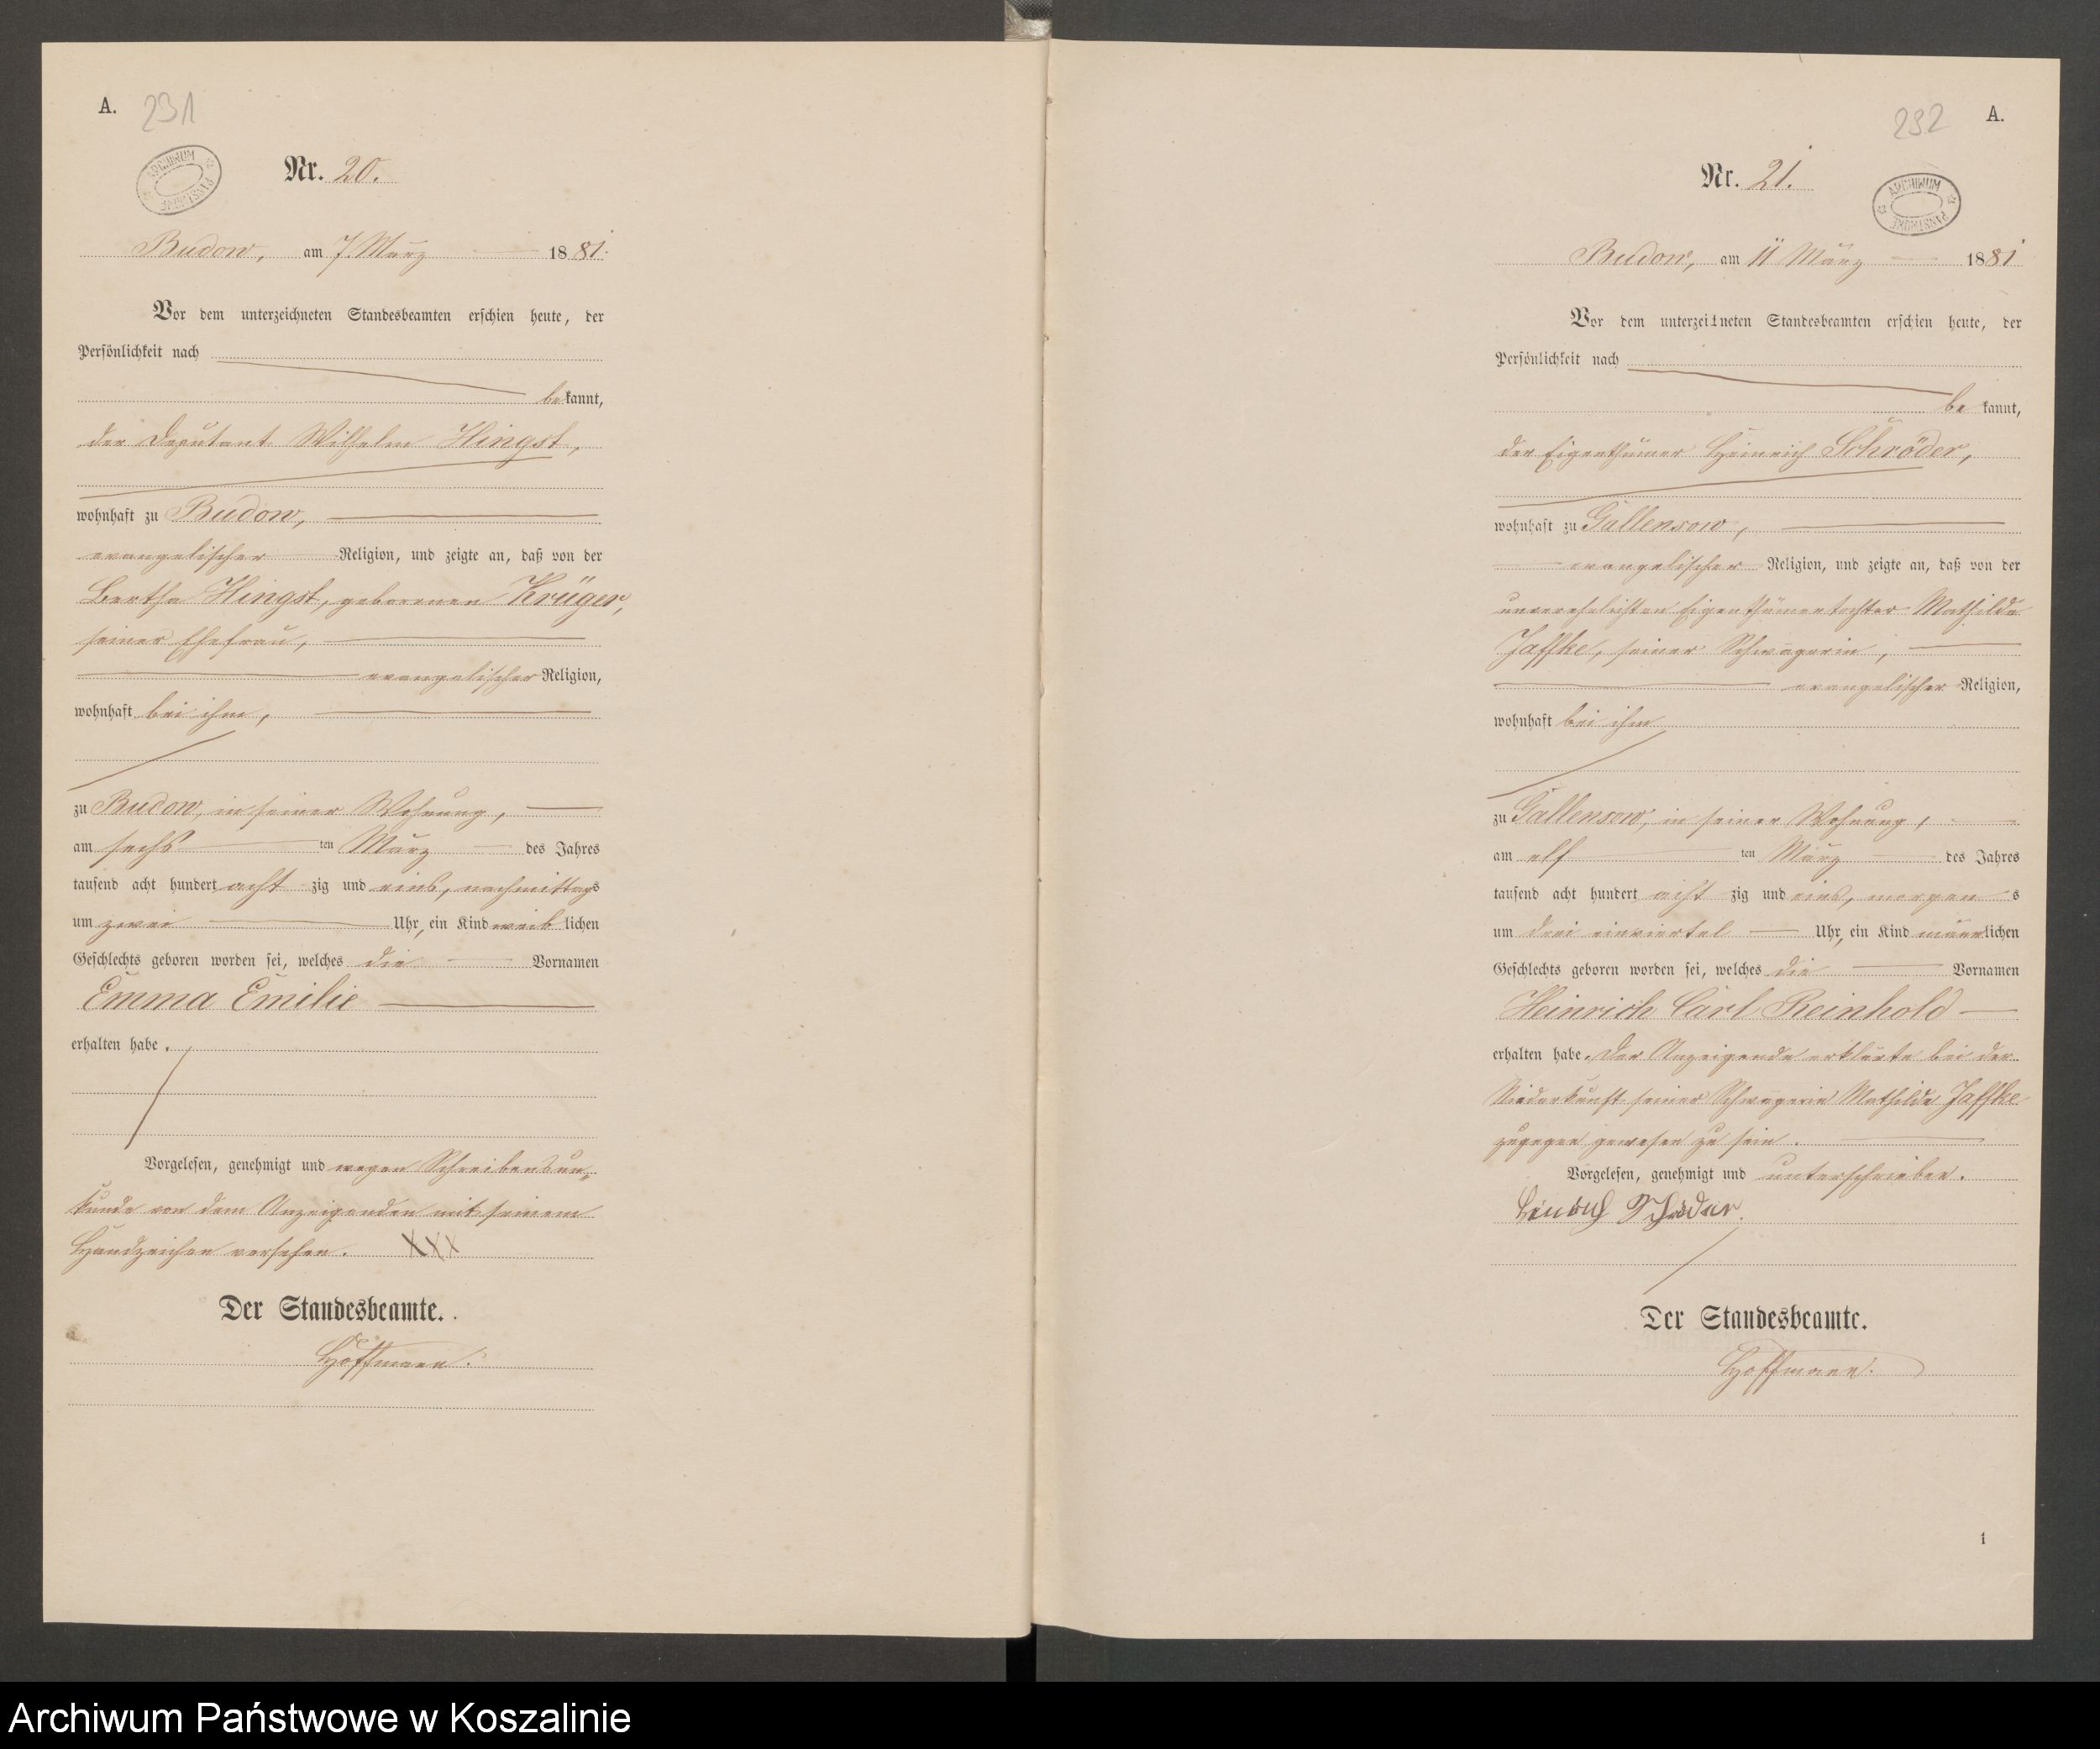 A. 231
ARCHIWUM PAŃSTWOWE
Nr. 20.
Budow, am 7. März 1881.
Vor dem unterzeichneten Standesbeamten erschien heute, der
Persönlichkeit nach
bekannt,
der Deputant Wilhelm Hingst,
wohnhaft zu Budow,
evangelischer Religion, und zeigte an, daß von der
Bertha Hingst, geborenen Krüger,
seiner Ehefrau,
evangelischer Religion,
wohnhaft bei ihm,
zu Budow, in seiner Wohnung,
am sechs ten März des Jahres
tausend acht hundert acht zig und eins, nachmittags
um zwei Uhr, ein Kind weiblichen
Geschlechts geboren worden sei, welches die Vornamen
Emma Emilie
erhalten habe.
Vorgelesen, genehmigt und wegen Schreibensun-
kunde von dem Anzeigenden mit seinem
Handzeichen versehen. XXX
Der Standesbeamte.
Hoffmann.
292 A.
Nr. 21.
ARCHIWUM PAŃSTWOWE
Budow, am 11 März 1881
Vor dem unterzeichneten Standesbeamten erschien heute, der
Persönlichkeit nach
be kannt,
der Eigenthümer Heinrich Schröder,
wohnhaft zu Gallensow,
evangelischer Religion, und zeigte an, daß von der
unverehelichten Eigenthümertochter Mathilde
Jaffke, seiner Schwägerin,
evangelischer Religion,
wohnhaft bei ihm
zu Gallensow, in seiner Wohnung,
am elf ten März des Jahres
tausend acht hundert acht zig und eins, morgen s
um drei einviertel Uhr, ein Kind männlichen
Geschlechts geboren worden sei, welches die Vornamen
Heinrich Carl Reinhold
erhalten habe. Der Anzeigende erklärte bei der
Niederkunft seiner Schwägerin Mathilde Jaffke
zugegen gewesen zu sein.
Vorgelesen, genehmigt und unterschrieben.
Heinrich Schröder.
Der Standesbeamte.
Hoffmann.
1
Archiwum Państwowe w Koszalinie